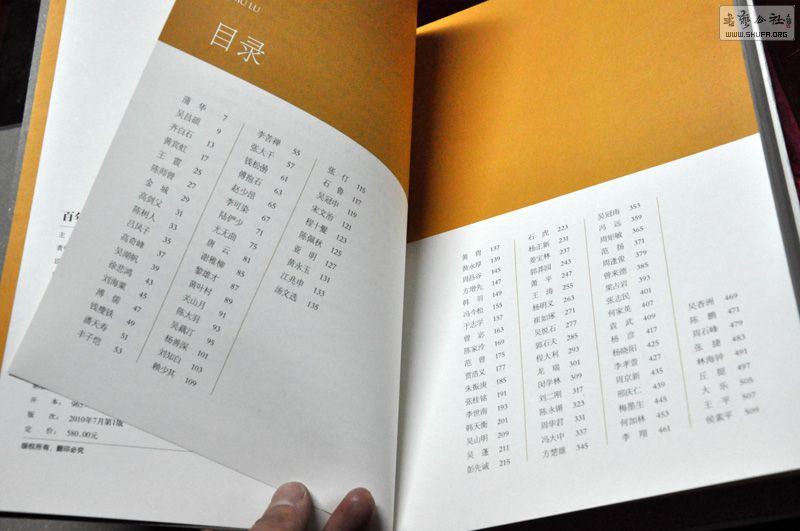 WWW.SHUFA.ORG
目录
蒲华 7
吴昌硕 9
齐白石 13
黄宾虹 17
王震 25
陈师曾 27
金城 29
高剑父 31
陈树人 33
吕凤子 35
高奇峰 37
吴湖帆 39
徐悲鸿 43
刘海粟 45
溥儒 47
钱瘦铁 49
潘天寿 51
丰子恺 53
李苦禅 55
张大千 57
钱松嵒 61
傅抱石 63
赵少昂 65
李可染 67
陆俨少 71
尤无曲 75
唐云 81
谢稚柳 85
黎雄才 87
黄叶村 89
关山月 91
陈大羽 93
吴藕汀 95
杨善深 101
刘知白 103
赖少其 109
张仃 115
石鲁 117
吴冠中 119
宋文治 121
程十髮 123
陈佩秋 125
亚明 127
黄永玉 131
江兆申 133
汤文选 135
黄胄 137
黄永厚 139
周昌谷 145
方增先 147
韩羽 149
冯今松 155
于志学 157
曾宓 163
陈家泠 169
范曾 175
贾浩义 177
朱振庚 185
张桂铭 191
李世南 193
韩天衡 201
吴山明 209
吴蓬 211
彭先诚 215
石虎 223
杨正新 231
姜宝林 237
郭莽园 243
萧平 247
王涛 255
杨明义 263
崔如琢 271
吴悦石 277
郭石夫 285
程大利 293
龙瑞 301
闵学林 309
刘二刚 317
陈永锵 323
周华君 331
冯大中 337
方楚雄 345
吴冠南 353
冯远 359
周矩敏 365
范扬 371
周逢俊 379
曾来德 385
梁占岩 393
张志民 401
何家英 407
袁武 409
杨彦 417
杨晓阳 425
李孝萱 427
周京新 431
邢庆仁 439
梅墨生 445
何加林 453
李翔 461
吴香洲 469
陈鹏 471
周石峰 479
张捷 483
林海钟 491
丘挺 497
大乐 505
王平 507
侯素平 509
开本:
版次: 2010年7月第1版
定价: 580.00元
版权所有,翻印必究